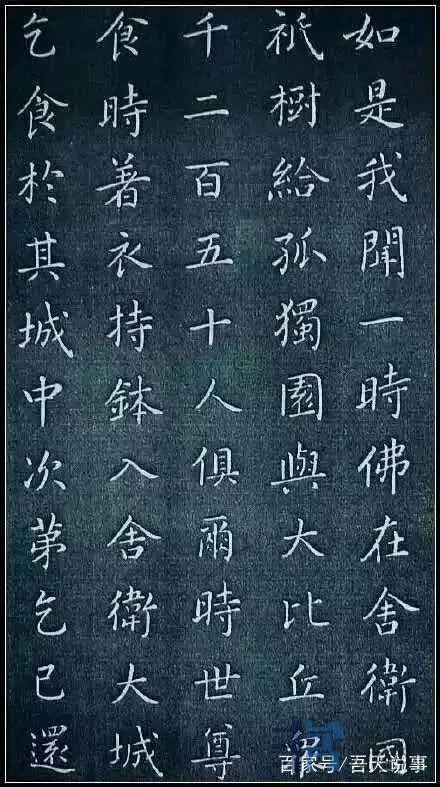 如是我聞一時佛在舍衛國
祇樹給孤獨園與大比丘眾
千二百五十人俱爾時世尊
食時著衣持鉢入舍衛大城
乞食於其城中次第乞已還
百家号/吾天说事